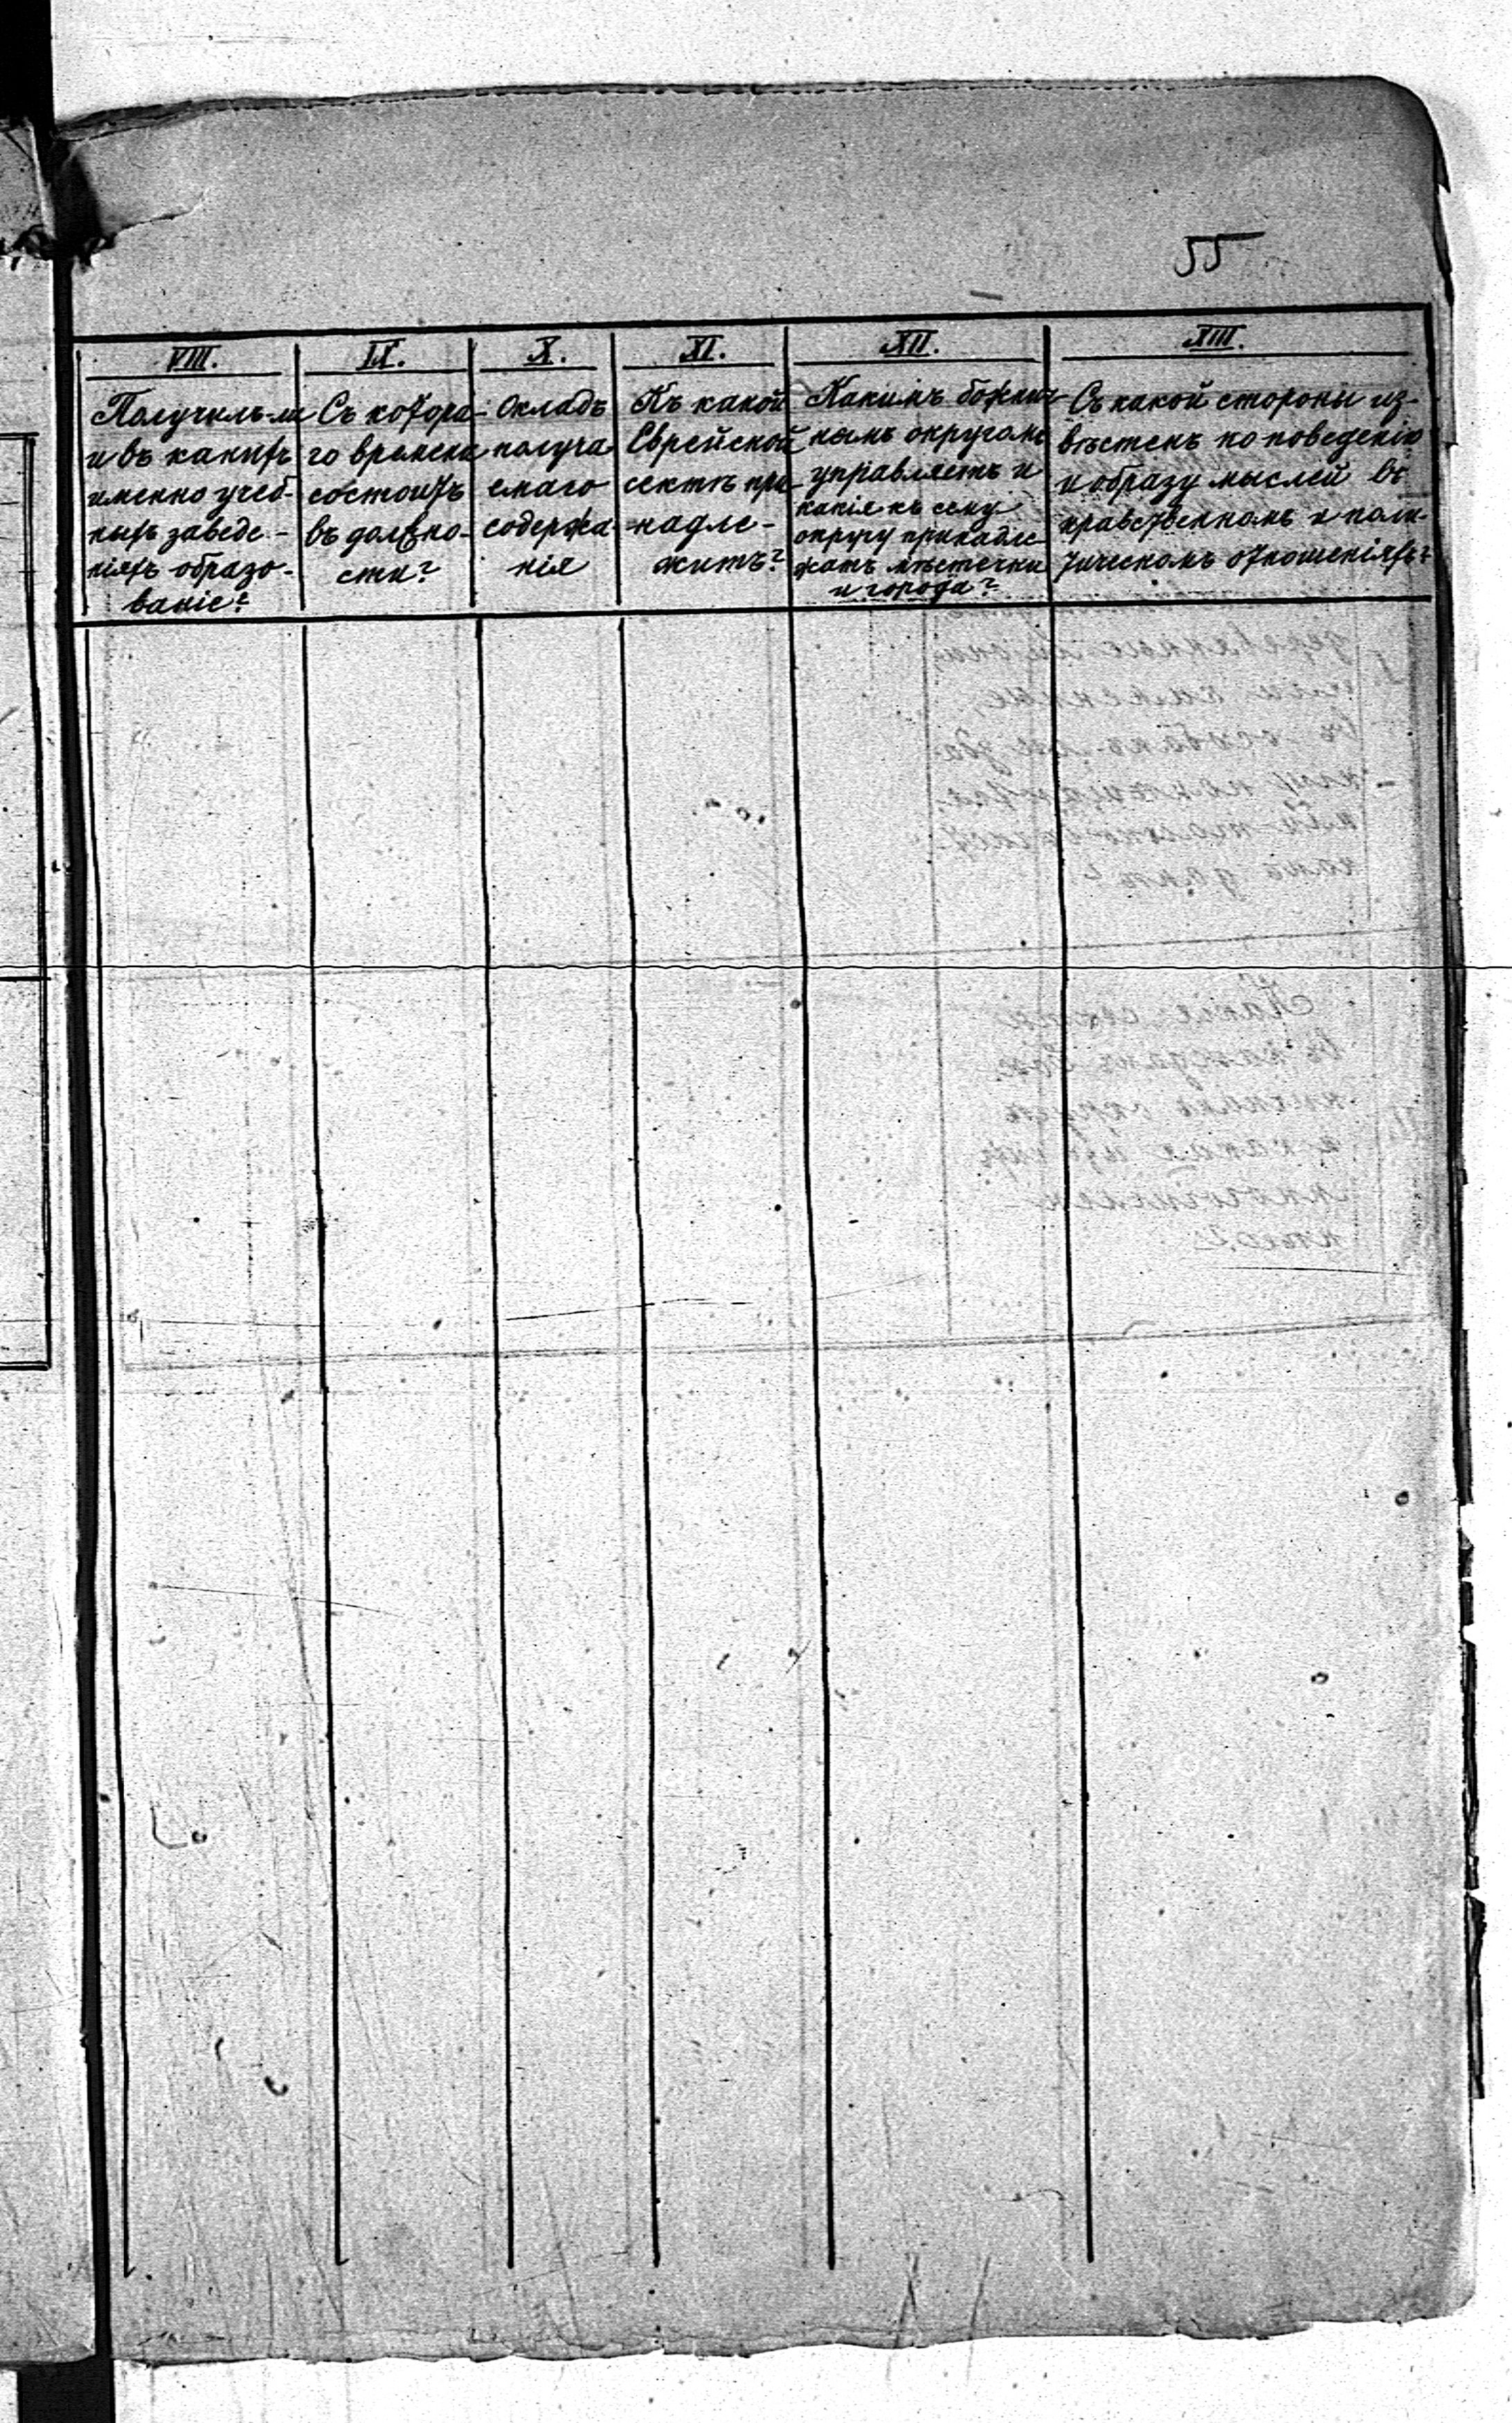 55
VIII.
Получилъ-ли
и въ какихъ
именно учеб-
ныхъ заведе-
ніяхъ образо-
ваніе?
IX.
Съ котора-
го времени
состоитъ
въ должно-
сти?
X.
Окладъ
получа
емаго
содержа
нія
XI.
Къ какой
Еврейской
сектѣ при-
надле-
житъ?
XII.
Какимъ божнич-
нымъ округомъ
управляетъ и
какія къ сему
округу принадле
жатъ мѣстечки
и города?
XIII.
Съ какой стороны из-
вѣстенъ по поведенію
и образу мыслей въ
нравственномъ и поли-
тическомъ отношеніяхъ?